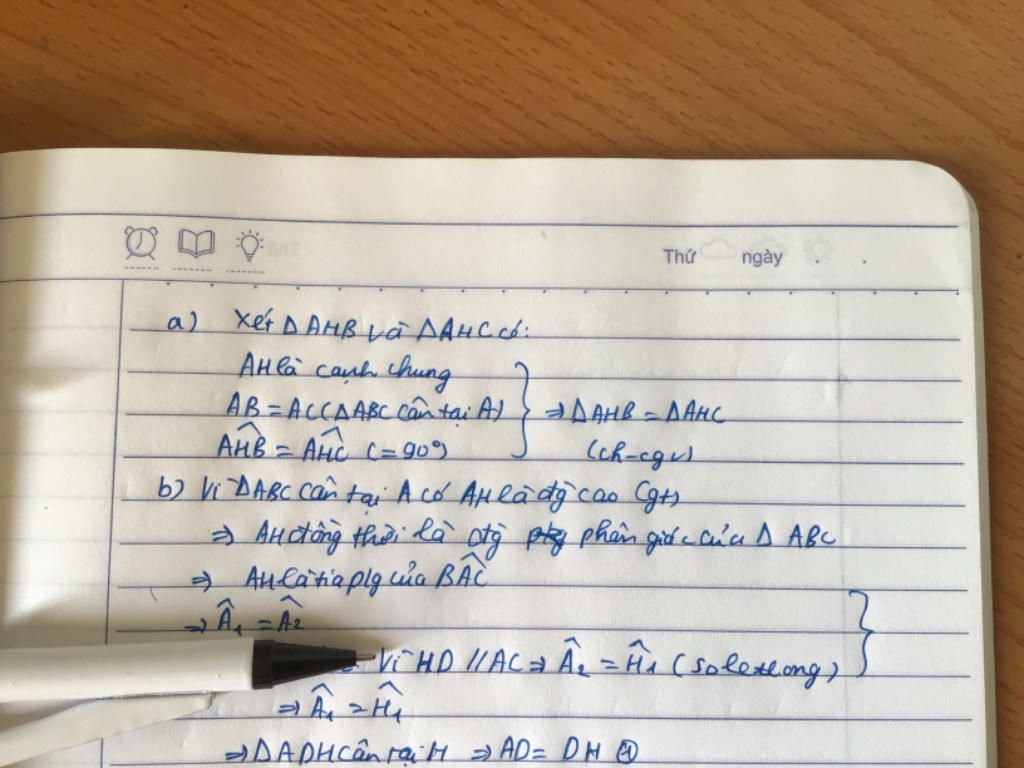 Thứ ngày
a) Xét ΔAHB và ΔAHC có:
AH là cạnh chung
AB = AC (ΔABC cân tại A) } ⇒ ΔAHB = ΔAHC
AHB̂ = AHĈ (= 90°) (ch-cgv)
b) Vì ΔABC cân tại A có AH là đg cao (gt)
⇒ AH đồng thời là đg phân giác của Δ ABC
⇒ AH là tia plg của BAĈ
⇒ Â1 = Â2
Vì HD // AC ⇒ Â2 = Ĥ1 (sole tlong) }
⇒ Â1 = Ĥ1
⇒ ΔADH cân tại H ⇒ AD = DH ①